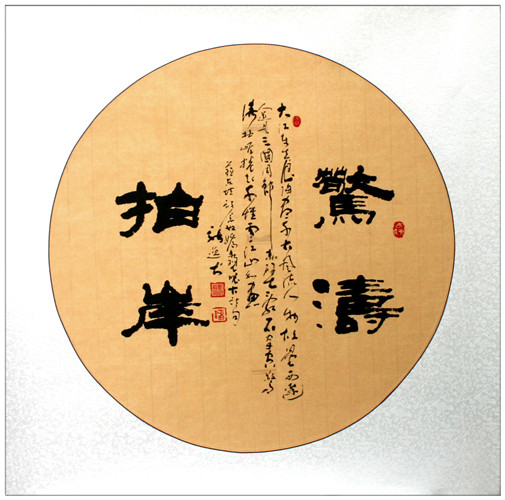 驚濤
大江东去浪淘尽千古風流人物故壘西邊
人道是三國周郎赤壁乱石穿空驚
濤拍岸捲起千堆雪江山如畫
拍岸